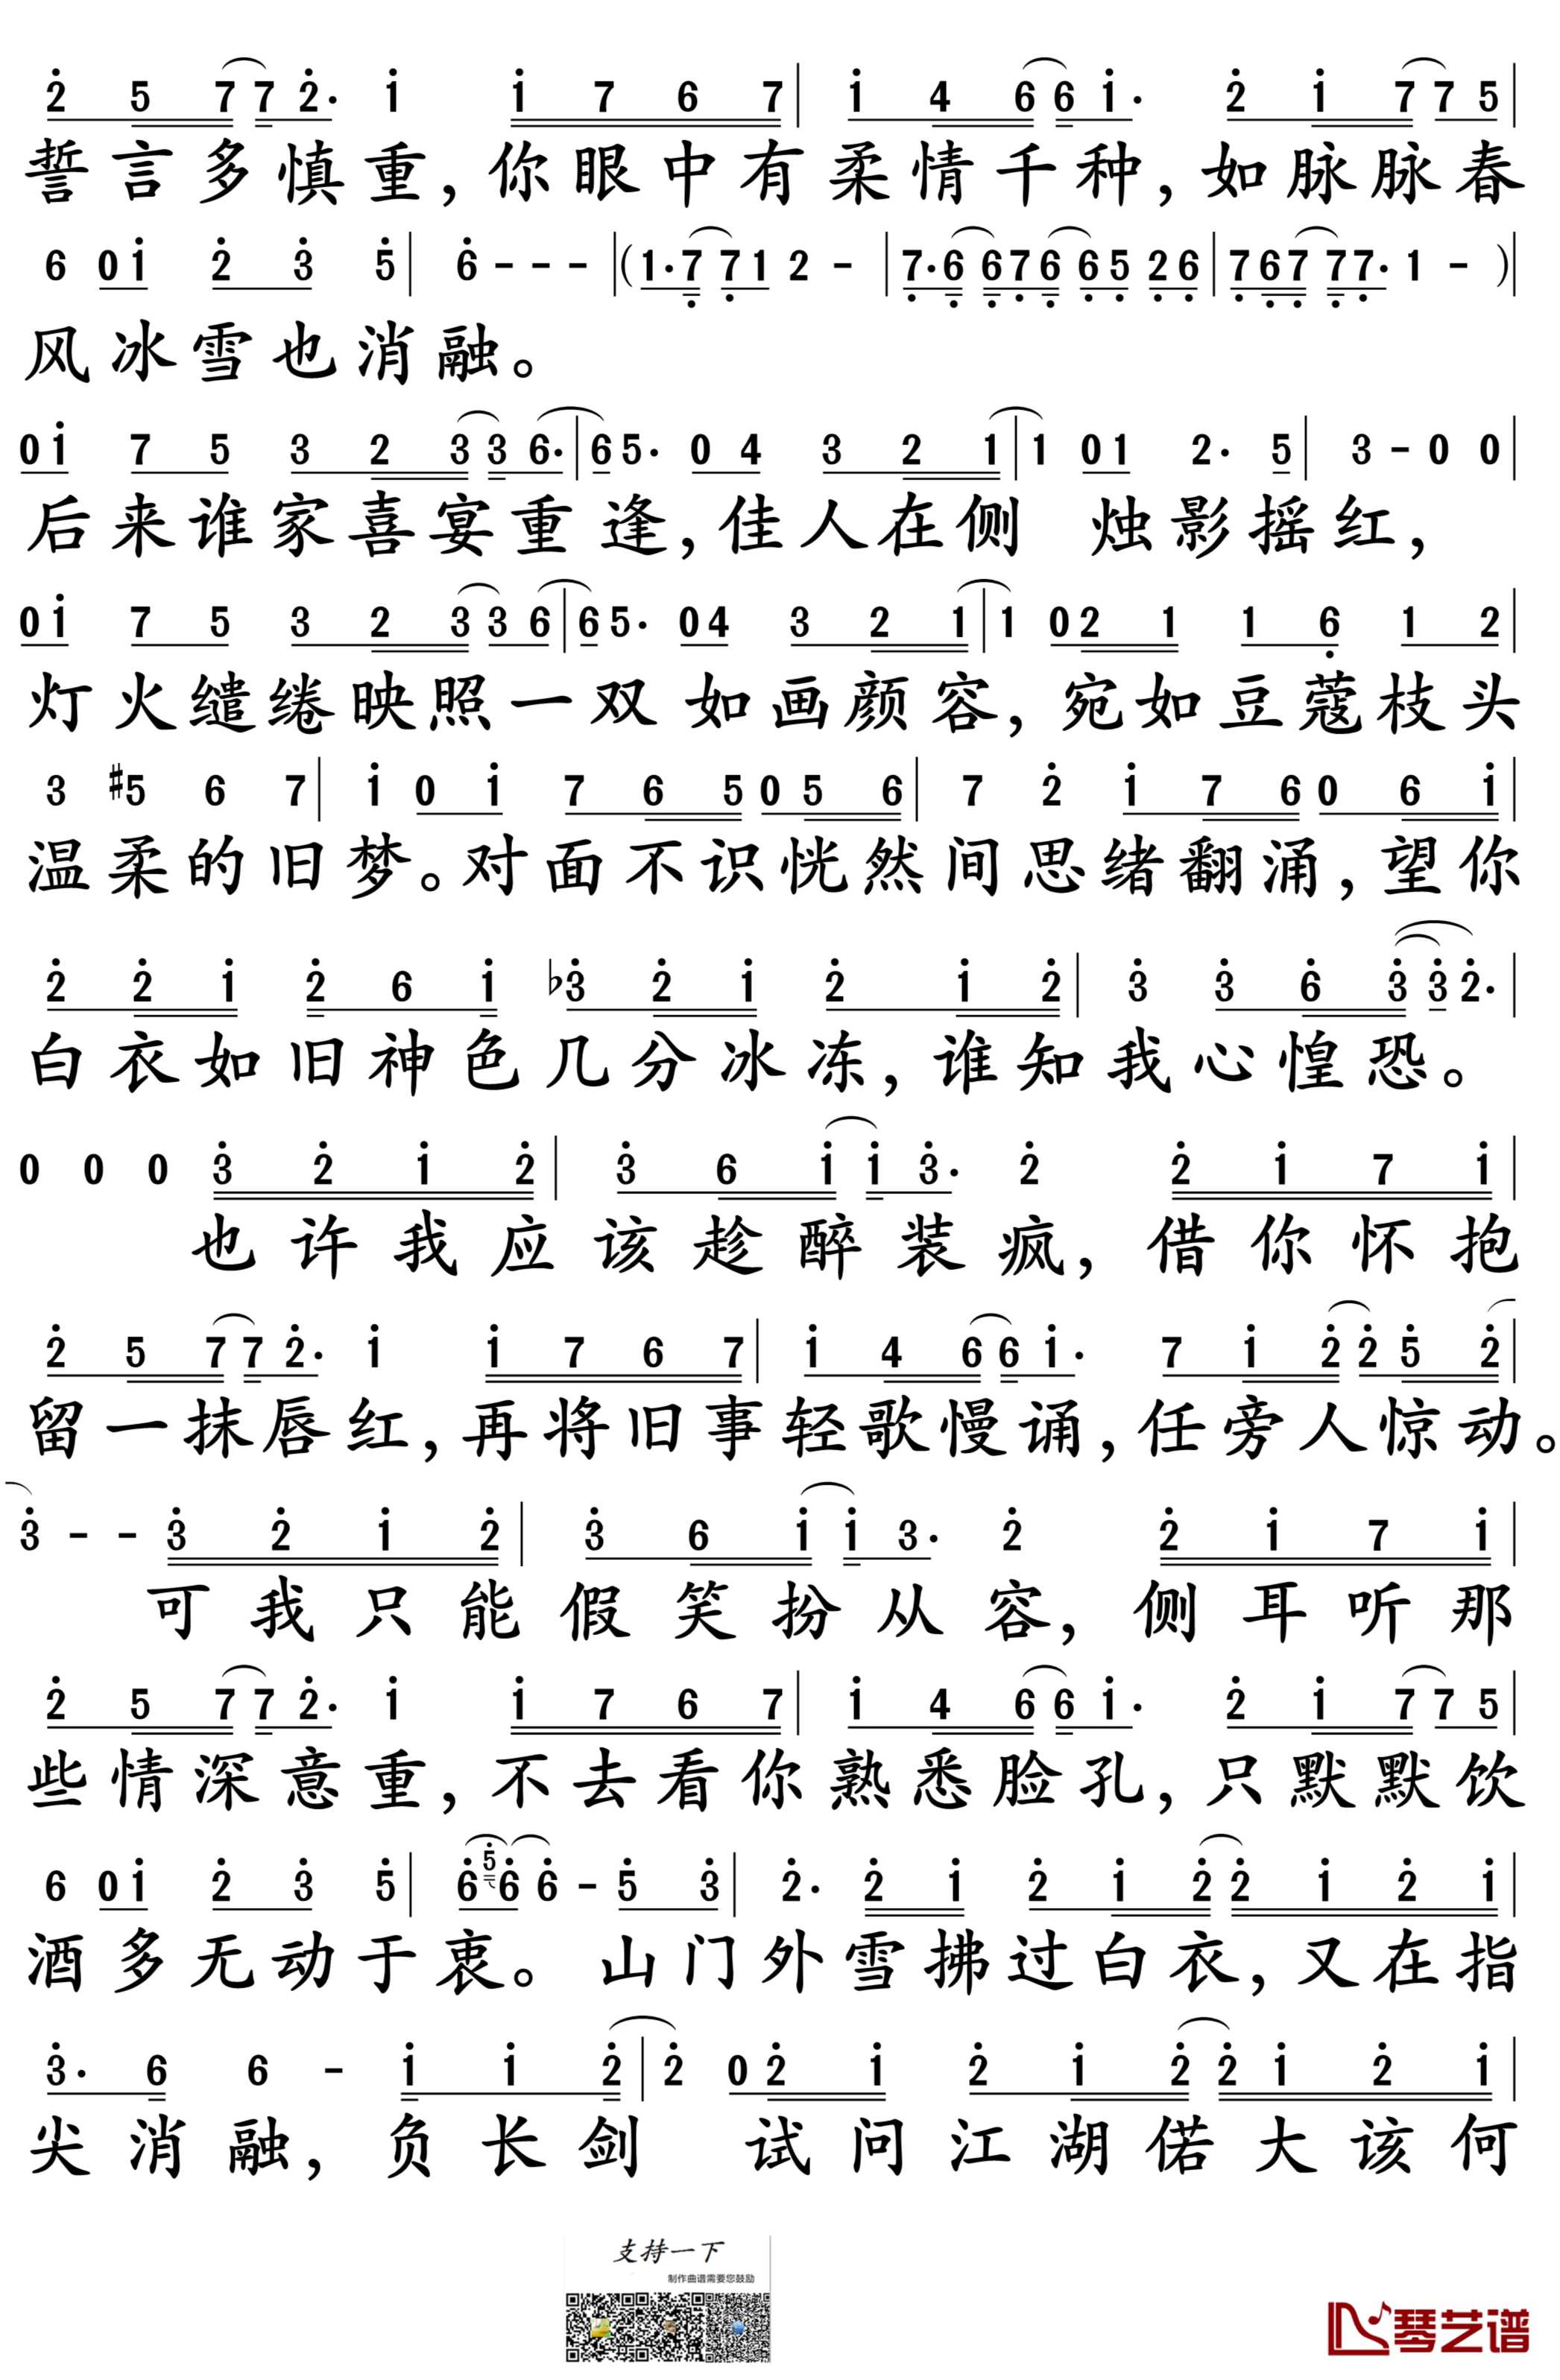 2̇ 5 7 7 2̇· 1̇ 1̇ 7 6 7 | 1̇ 4 6 6 1̇· 2̇ 1̇ 7 7 5 |
誓言多慎重，你眼中有柔情千种，如脉脉春
6 0 1̇ 2̇ 3̇ 5̇ | 6̇ - - - | (1· 7̣ 7̣ 1 2 - | 7̣· 6̣ 6̣ 7̣ 6̣ 6̣ 5̣ 2̣ 6̣ | 7̣ 6̣ 7̣ 7̣ 7̣· 1 - ) |
风冰雪也消融。
0 1̇ 7 5 3 2 3 3 6· | 6 5· 0 4 3 2 1 | 1 0 1 2· 5 | 3 - 0 0 |
后来谁家喜宴重逢，佳人在侧 烛影摇红，
0 1̇ 7 5 3 2 3 3 6 | 6 5· 0 4 3 2 1 | 1 0 2 1 1 6̣ 1 2 |
灯火缱绻映照一双如画颜容，宛如豆蔻枝头
3 #5 6 7 | 1̇ 0 1̇ 7 6 5 0 5 6 | 7 2̇ 1̇ 7 6 0 6 1̇ |
温柔的旧梦。对面不识恍然间思绪翻涌，望你
2̇ 2̇ 1̇ 2̇ 6 1̇ ♭3̇ 2̇ 1̇ 2̇ 1̇ 2̇ | 3̇ 3̇ 6̇ 3̇ 3̇ 2̇· |
白衣如旧神色几分冰冻，谁知我心惶恐。
0 0 0 3̇ 2̇ 1̇ 2̇ | 3̇ 6 1̇ 1̇ 3̇· 2̇ 2̇ 1̇ 7 1̇ |
也许我应该趁醉装疯，借你怀抱
2̇ 5 7 7 2̇· 1̇ 1̇ 7 6 7 | 1̇ 4 6 6 1̇· 7 1̇ 2̇ 2̇ 5̇ 2̇ |
留一抹唇红，再将旧事轻歌慢诵，任旁人惊动。
3̇ - - 3̇ 2̇ 1̇ 2̇ | 3̇ 6 1̇ 1̇ 3· 2̇ 2̇ 1̇ 7 1̇ |
可我只能假笑扮从容，侧耳听那
2̇ 5 7 7 2̇· 1̇ 1̇ 7 6 7 | 1̇ 4 6 6 1̇· 2̇ 1̇ 7 7 5 |
些情深意重，不去看你熟悉脸孔，只默默饮
6 0 1̇ 2̇ 3̇ 5̇ | 6̇ 5̇ 6̇ 6̇ - 5̇ 3̇ | 2̇· 2̇ 1̇ 2̇ 1̇ 2̇ 2̇ 1̇ 2̇ 1̇ |
酒多无动于衷。山门外雪拂过白衣，又在指
3̇· 6 6 - 1̇ 1̇ 2̇ | 2̇ 0 2̇ 1̇ 2̇ 1̇ 2̇ 2̇ 1̇ 2̇ 1̇ |
尖消融，负长剑 试问江湖偌大该何
支持一下
制作曲谱需要您鼓励
琴艺谱